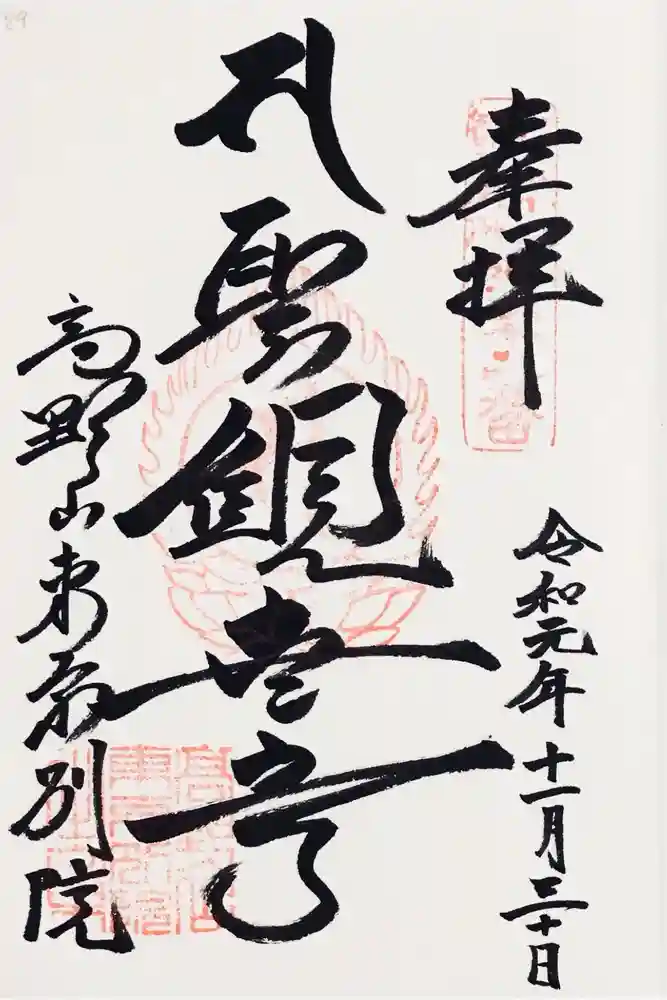 奉拝
令和元年十一月三十日
聖観世音
高野山東京別院
29